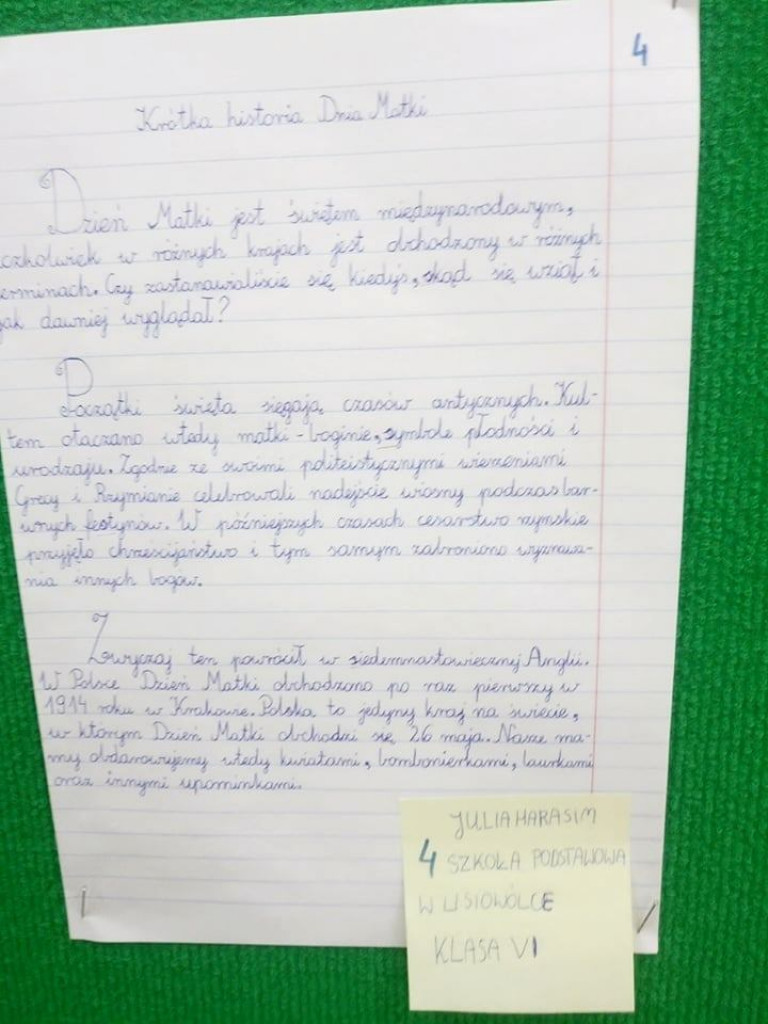 4
Krótka historia Dnia Matki
Dzień Matki jest świętem międzynarodowym,
czkolwiek w różnych krajach jest obchodzony w różnych
erminach. Czy zastanawialiście się kiedyś, skąd się wziął i
jak dawniej wyglądał?
Początki święta sięgają czasów antycznych. Kul-
tem otaczano wtedy matki-boginie, symbole płodności i
urodzaju. Zgodnie ze swoimi politeistycznymi wierzeniami
Grecy i Rzymianie celebrowali nadejście wiosny podczas bar-
wnych festynów. W późniejszych czasach cesarstwo rzymskie
przyjęło chrześcijaństwo i tym samym zabroniono wyznawa-
nia innych bogów.
Zwyczaj ten powrócił w siedemnastowiecznej Anglii.
W Polsce Dzień Matki obchodzono po raz pierwszy w
1914 roku w Krakowie. Polska to jedyny kraj na świecie,
w którym Dzień Matki obchodzi się 26 maja. Nasze ma-
my obdarowujemy wtedy kwiatami, bombonierkami, laurkami
oraz innymi upominkami.
JULIA HARASIM
4 SZKOŁA PODSTAWOWA
W LISIOWÓLCE
KLASA VI